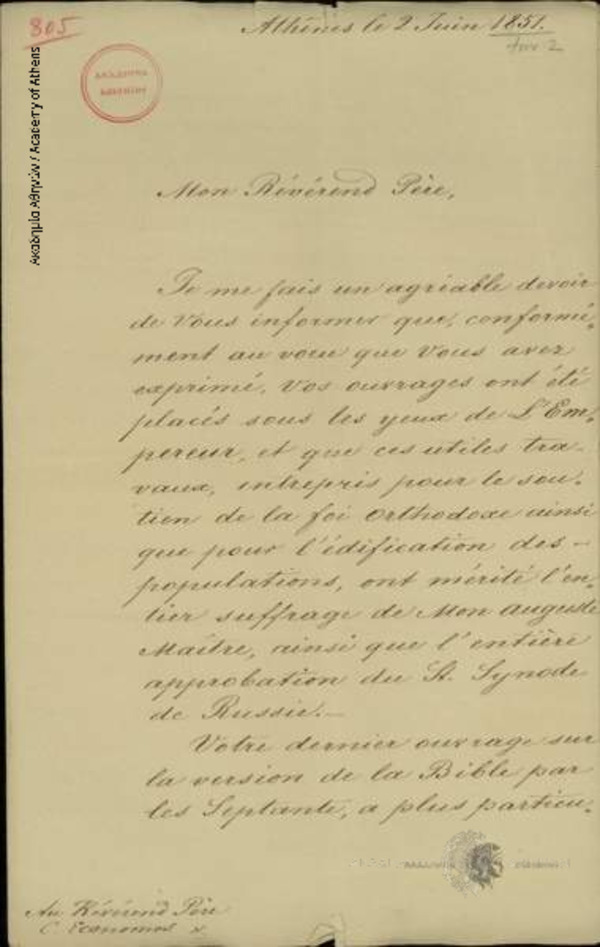 805
Athènes le 2 Juin 1851.
ΑΚΑΔΗΜΙΑ
ΑΘΗΝΩΝ
Ακαδημία Αθηνών / Academy of Athens
Mon Révérend Père,
Je me fais un agréable devoir
de Vous informer que, conformé-
ment au voeu que Vous avez
exprimé, Vos ouvrages ont été
placés sous les yeux de L'Em-
pereur, et que ces utiles tra-
vaux, entrepris pour le sou-
tien de la foi Orthodoxe ainsi
que pour l'édification des
populations, ont mérité l'en-
tier suffrage de Mon Auguste
Maître, ainsi que l'entière
approbation du St. Synode
de Russie.—
Votre dernier ouvrage sur
la version de la Bible par
les Septante, a plus particu-
Au Révérend Père
C. Economos